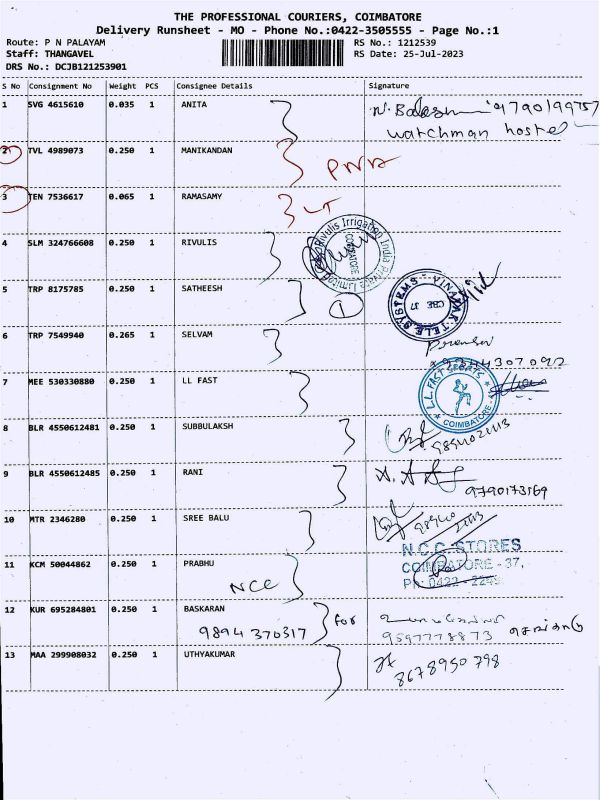 THE PROFESSIONAL COURIERS, COIMBATORE
Delivery Runsheet - MO - Phone No.:0422-3505555 - Page No.:1
Route: P N PALAYAM RS No.: 1212539
Staff: THANGAVEL RS Date: 25-Jul-2023
DRS No.: DCJB121253901
S No Consignment No Weight PCS Consignee Details Signature
1 SVG 4615610 0.035 1 ANITA 9790199757
watchman hostel
2 TVL 4989073 0.250 1 MANIKANDAN
3 TEN 7536617 0.065 1 RAMASAMY LT
4 SLM 324766608 0.250 1 RIVULIS Rivulis Irrigation India Private Limited COIMBATORE
5 TRP 8175785 0.250 1 SATHEESH 1 VINAYAK TELE SYSTEMS CBE 37
6 TRP 7549940 0.265 1 SELVAM
7 MEE 530330880 0.250 1 LL FAST L.L. FAST SPORTS COIMBATORE
8 BLR 4550612481 0.250 1 SUBBULAKSH
9 BLR 4550612485 0.250 1 RANI
9790173169
10 MTR 2346280 0.250 1 SREE BALU
N.C.C. STORES
11 KCM 50044862 0.250 1 PRABHU COIMBATORE - 37,
NCC PH: 0422 -
12 KUR 695284801 0.250 1 BASKARAN for
9894370317 9597778873
13 MAA 299908032 0.250 1 UTHYAKUMAR
8678950798